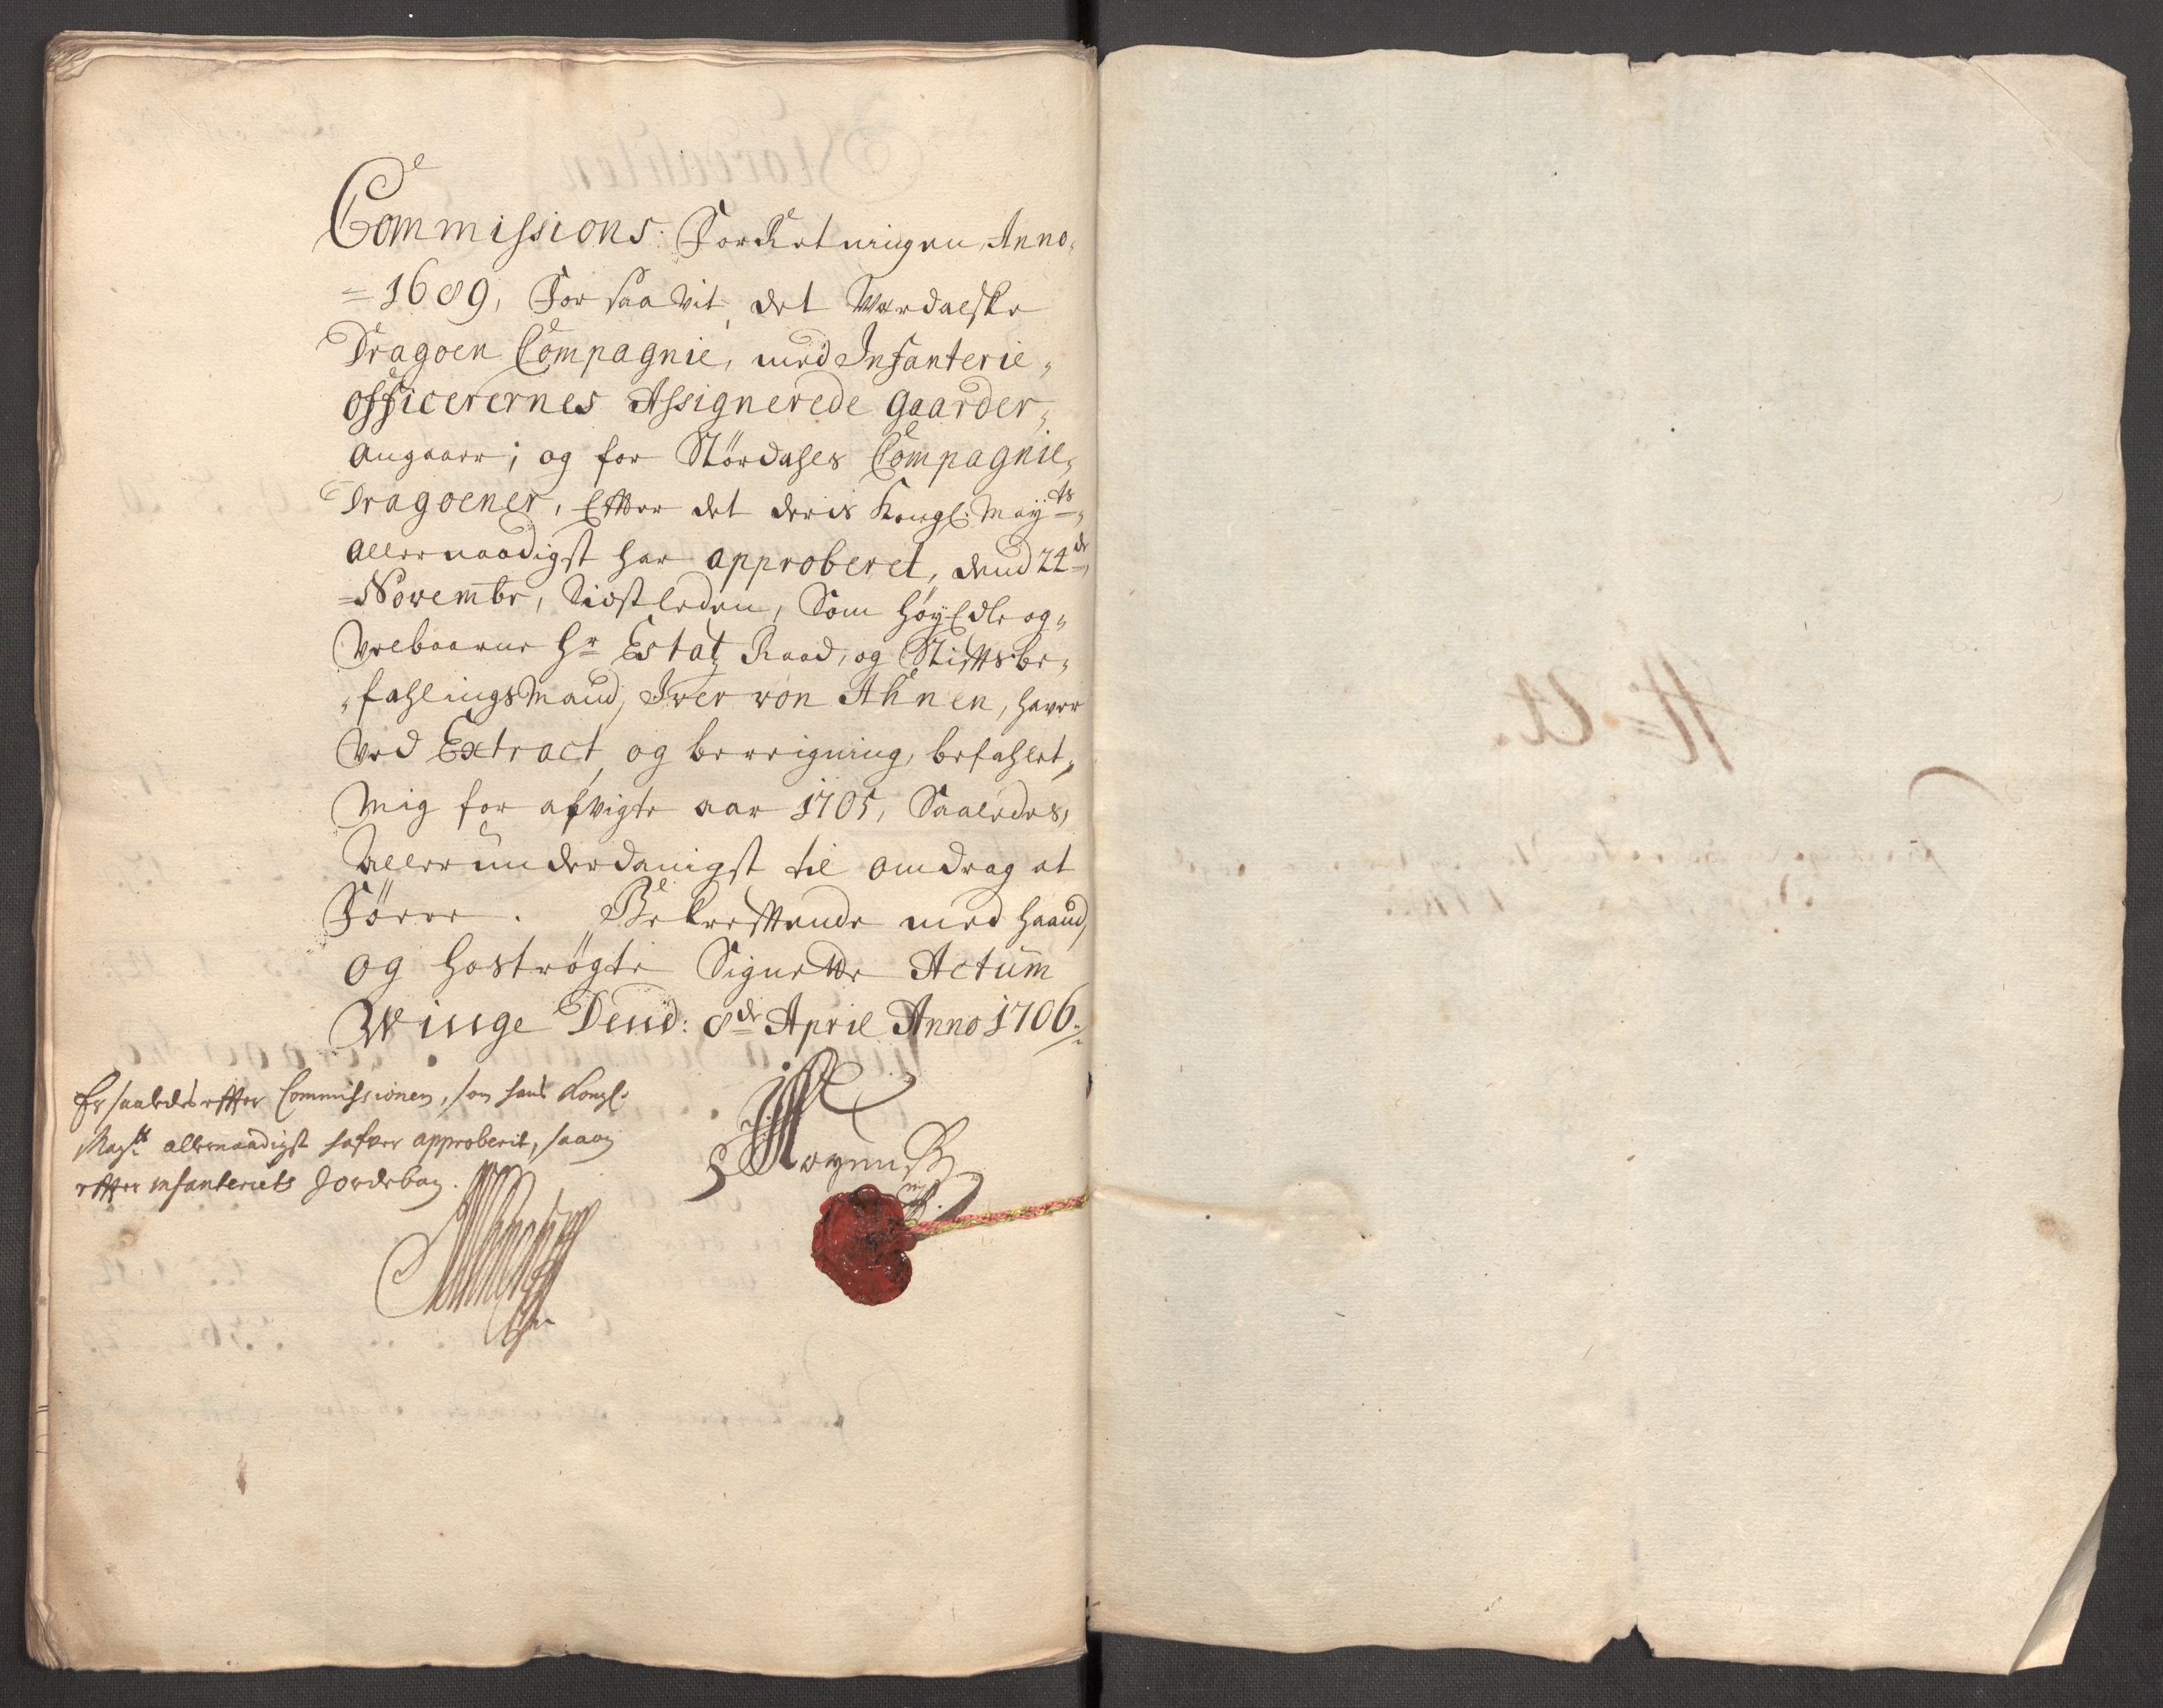 Commissions: ForRetningen, Anno,
=1689, For saa vit, det Wærdalske
Dragoen Compagnie, med Infanterie,
officerernes Assignerede Gaarder,
Angaaer; og for Stördahls Compagnie,
Dragoener, Efter det deris Kongl: Mayts,
Allernaadigst har approberet, dend 24de,
=Novembr, Sidstleden, Som HöyEdle og,
Velbaarne Hr Estatz Raad, og Stiftsbe,
,fahlingsMand, Iver von Ahnen, haver
Ved Extract, og beregning, befahlet,
Mig for afvigte aar 1705, Saaledes,
Allerunderdanigst til omdrag at
Föree. Bekreftende med Haand,
og hoströgte Signette Actum
Winge Dend: 8de April Anno 1706.
Er saaledes efter Commissionen, som hans Kongl:
Mayst allernaadigst hafver approberit, saa og
efter infanteriets Jordebog.